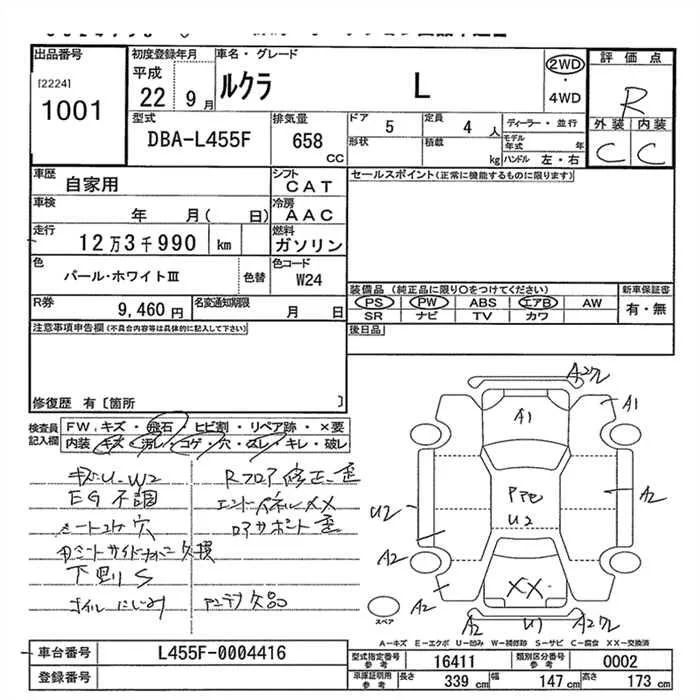 出品番号
[2224]
1001
初度登録年月
平成
22 9月
車名・グレード
ルクラ L
2WD
・
4WD
評価点
R
外装 内装
C C
型式
DBA-L455F
排気量
658
CC
ドア 5
定員 4 人
形状
積載 kg
ディーラー・並行
モデル年式 年
ハンドル 左・右
車歴 自家用
シフト CAT
車検 年 月( 日)
冷房 AAC
走行 12万3千990 km
燃料 ガソリン
色 パール・ホワイトⅢ 色替
色コード W24
R券 9,460円
名変通知期限 月 日
セールスポイント(正常に機能するものに限ります)
装備品(純正品に限り○をつけてください)
PS PW ABS エアB AW
SR ナビ TV カワ
新車保証書
有・無
後日品
注意事項申告欄(不具合内容等は具体的に記入して下さい)
修復歴 有〔箇所 〕
検査員記入欄
FW.キズ・飛石・ヒビ割・リペア跡・×要
内装・キズ・汚レ・コゲ・穴・スレ・キレ・破レ
Rフロア修正、歪
EG不調
エンドパネルXX
シートコゲ穴
ロアサポート歪
下廻りS
アンテナ欠品
A2
A1
A1
U2
U2
A2
A2
A2
XX
A2
U1
A2
スペア
A－キズ E－エクボ U－凹み W－補修跡 S－サビ C－腐食 XX－交換済
車台番号 L455F-0004416
登録番号
型式指定番号
参考
16411
類別区分番号
参考
0002
車庫証明用
参考
長さ 339 cm
幅 147 cm
高さ 173 cm